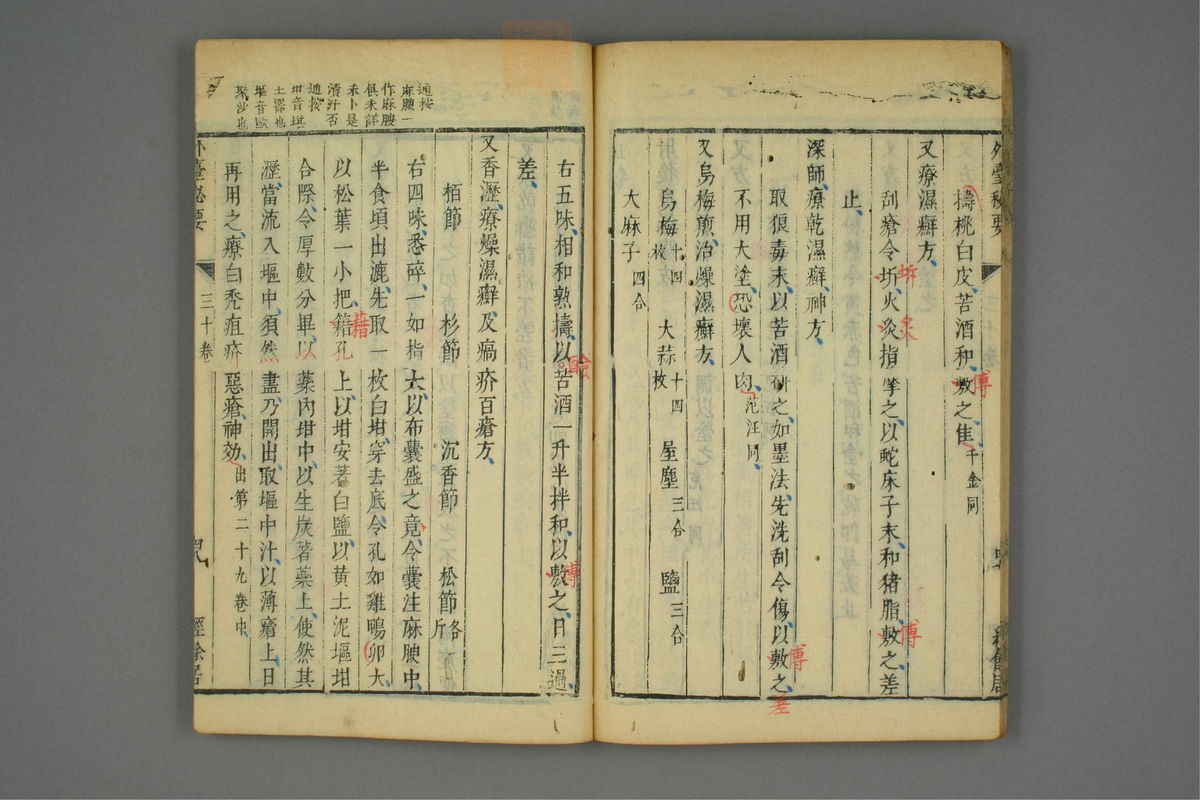 外臺秘要
擣桃白皮苦酒和敷之佳千金同
傅
又療濕癬方
刮瘡令坼火灸指摩之以蛇床子末和猪脂敷之差
坼
炙
傅
止
深師療乾濕癬神方
取狼毒末以苦酒研之如墨法先洗刮令傷以敷之
傅
差
不用大塗恐壞人肉范汪同
又烏梅煎治燥濕癬方
烏梅十四枚 大蒜十四枚 屋塵三合 鹽三合
大麻子四合
右五味相和熟擣以苦酒一升半拌和以敷之日三過
傅
差
又香瀝療燥濕癬及瘑疥百瘡方
栢節 杉節 沉香節 松節各斤
右四味悉碎一如指大以布囊盛之竟令囊注麻腴中
半食頃出漉先取一枚白坩穿去底令孔如雞鴨卵大
以松葉一小把籍孔上以坩安著白鹽以黃土泥塸坩
藉
合際令厚數分畢以藥內坩中以生炭著藥上使然其
瀝當流入塸中須然盡乃開出取塸中汁以薄瘡上日
再用之療白禿疽疥惡瘡神効出第二十九卷中
外臺秘要 三十卷 經餘居
通按
麻腴一
作麻腴
俱未詳
未卜是
清汁否
通按
坩音堪
土器也
塸音歐
聚沙也